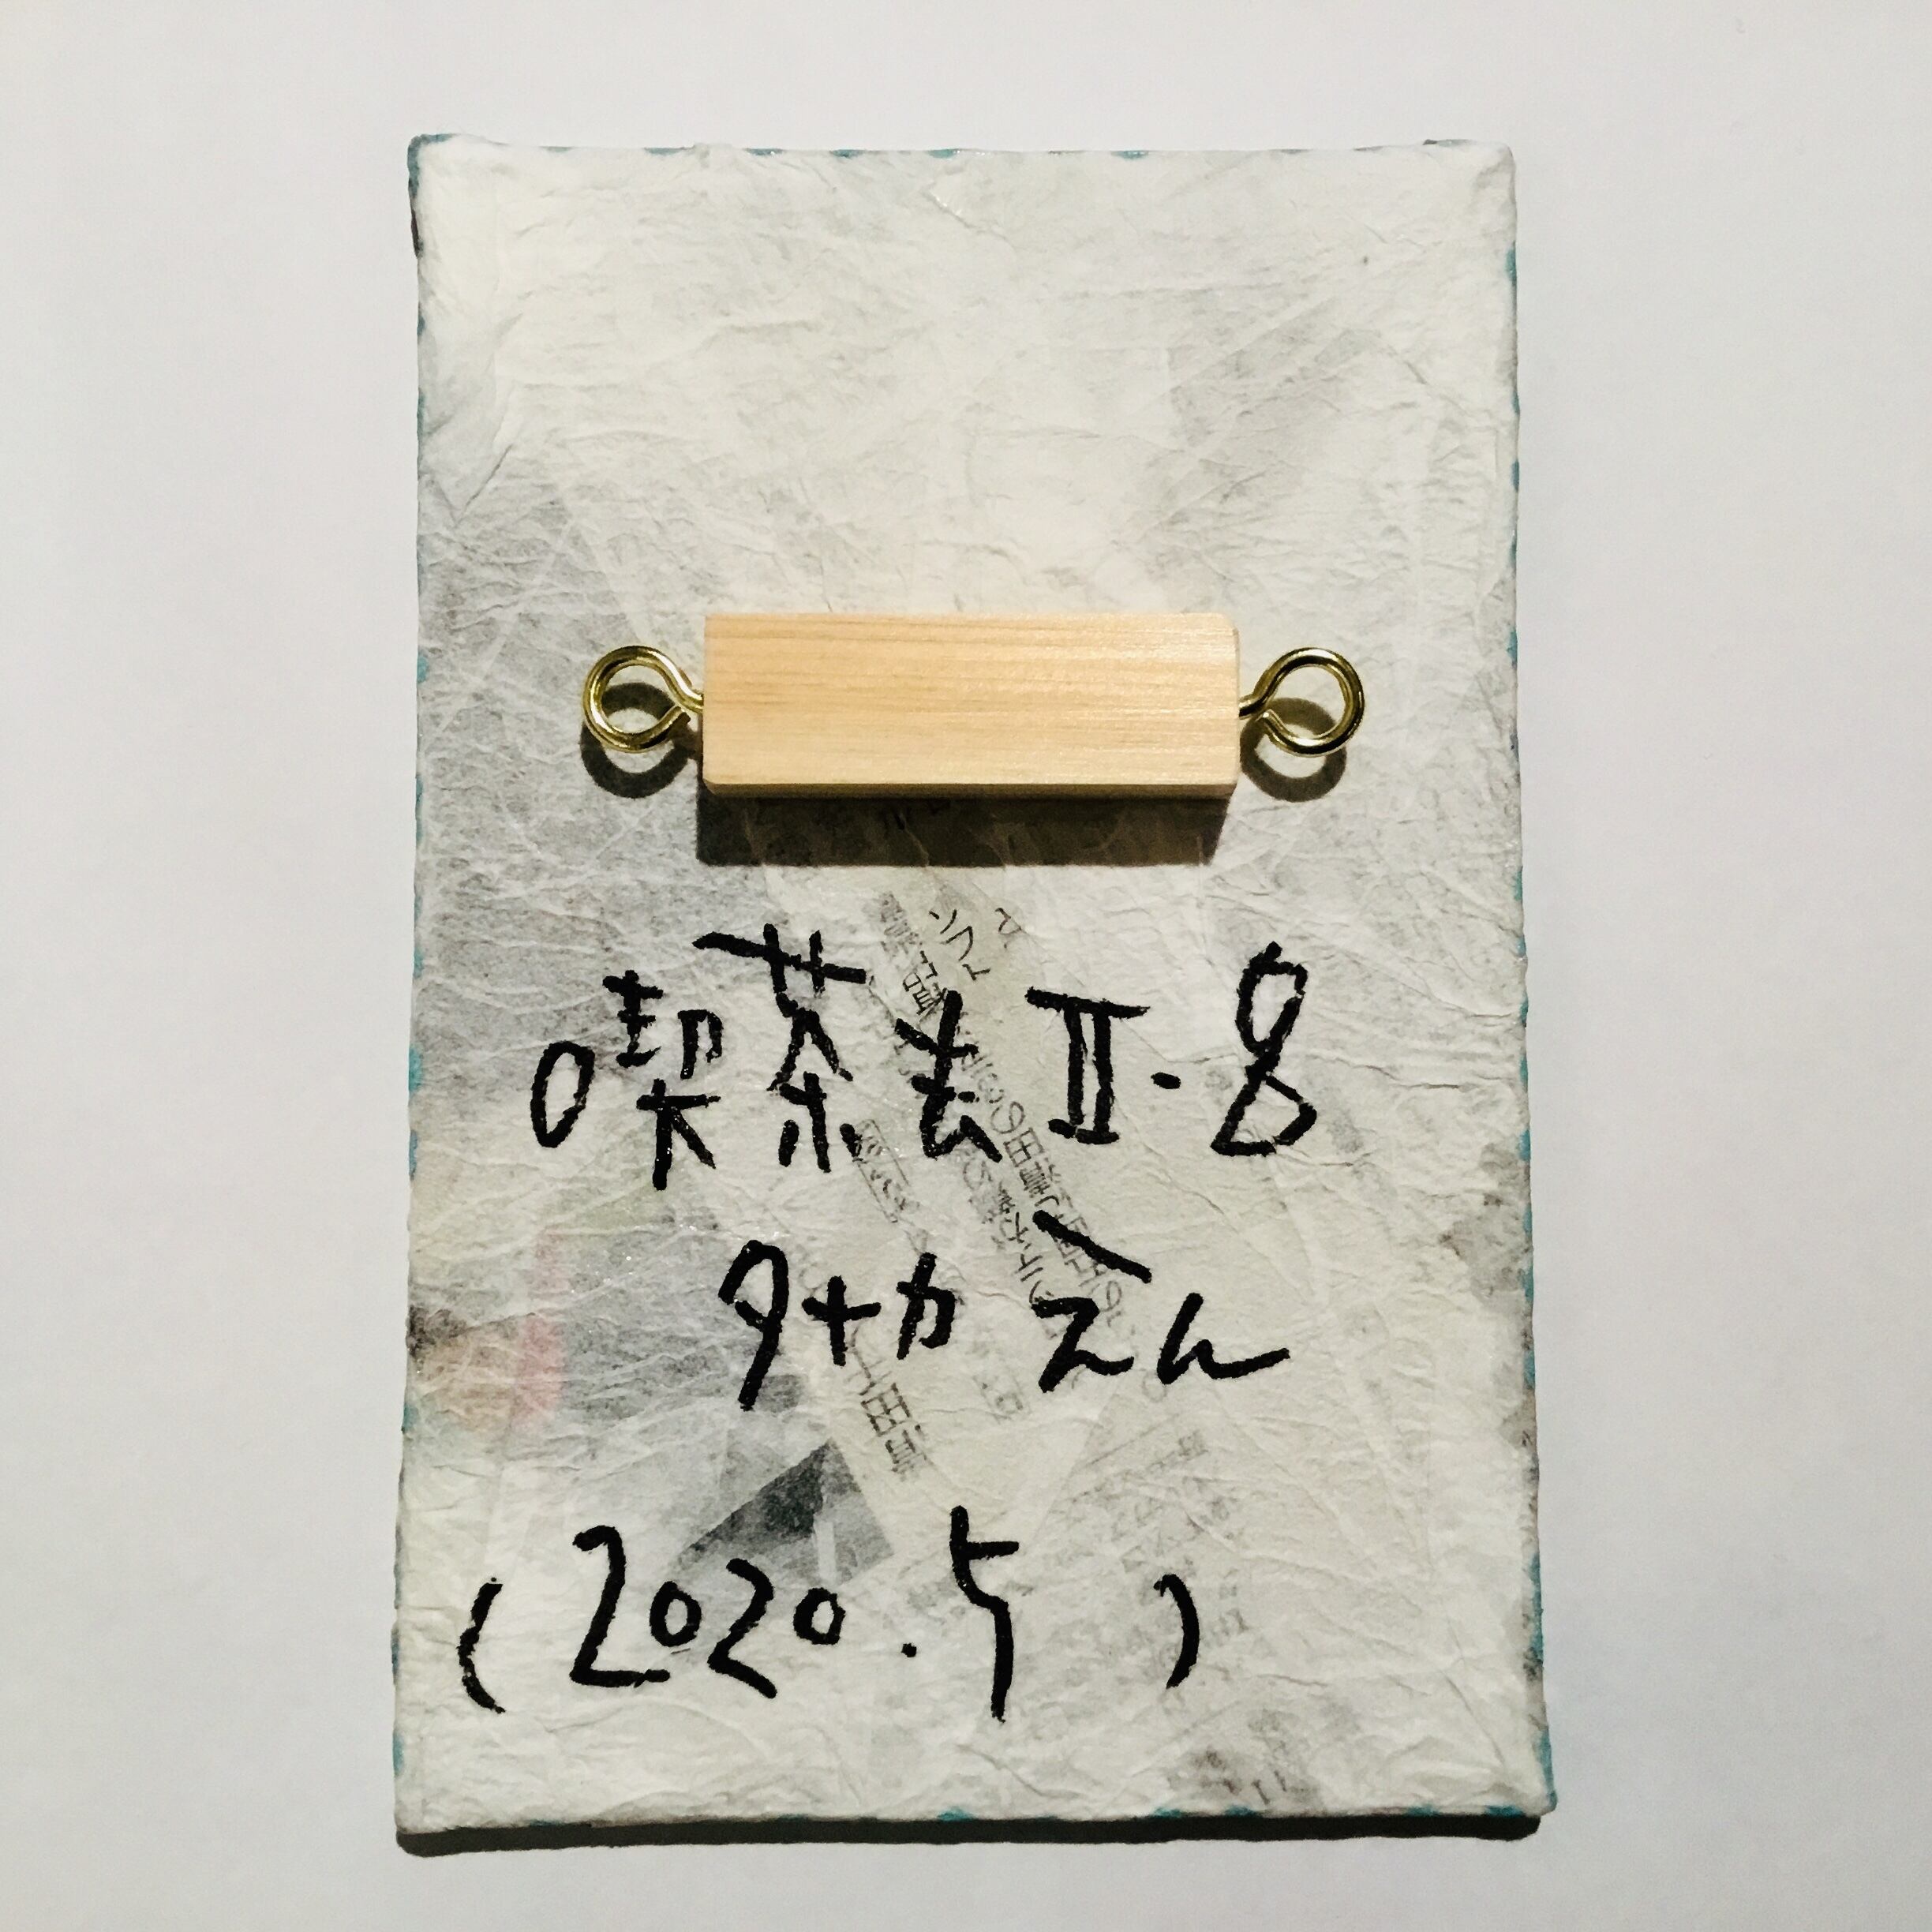 喫茶去Ⅱ-8
タナカえん
(2020.5)